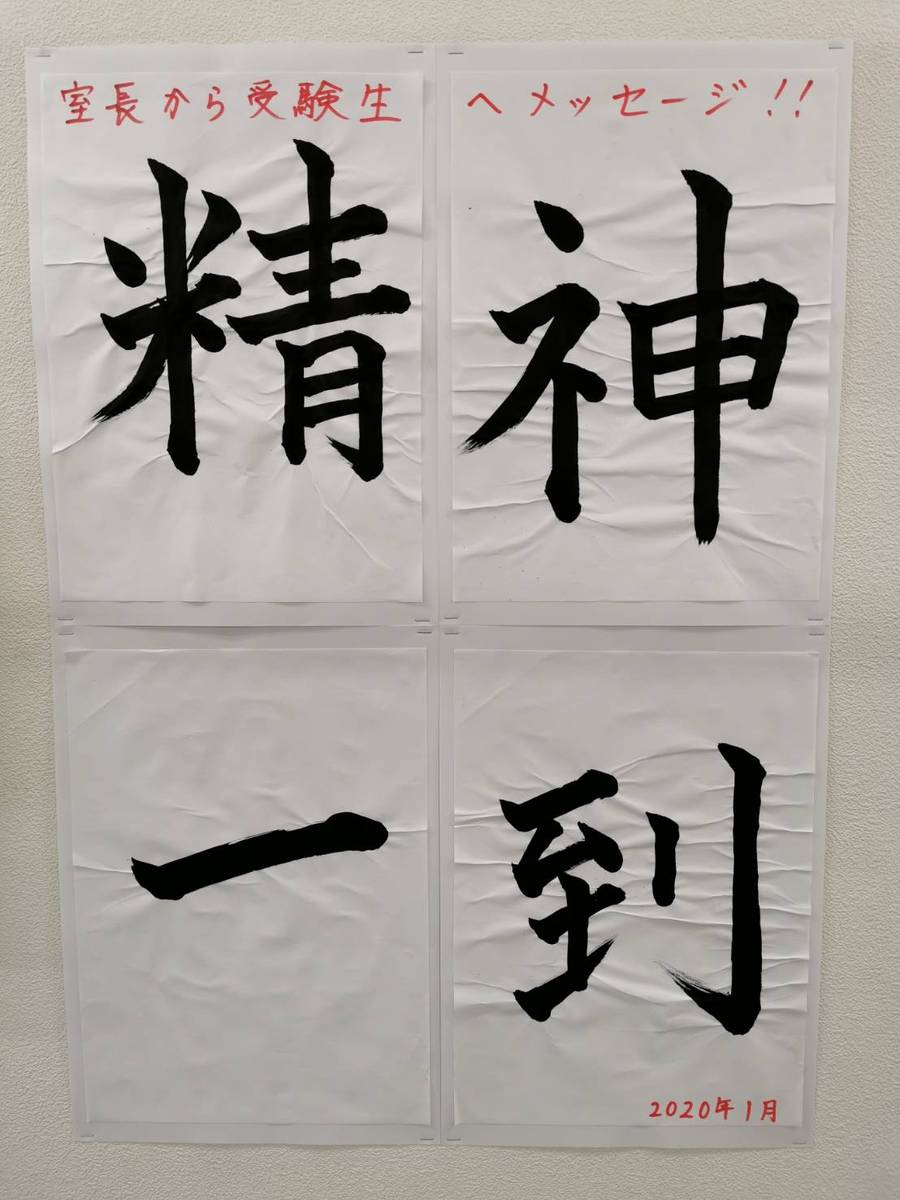 室長から受験生へメッセージ!!
精神
一到
2020年1月